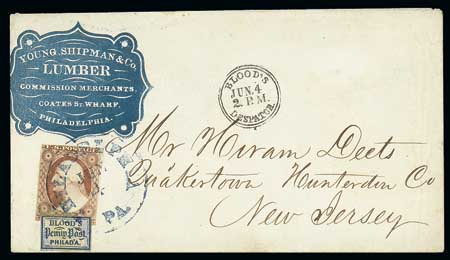 YOUNG, SHIPMAN & Co.
LUMBER
COMMISSION MERCHANTS,
COATES ST. WHARF,
PHILADELPHIA.
BLOOD'S
JUN. 4
2. P.M.
DESPATCH
U.S. POSTAGE
PA
BLOOD'S
Penny Post
PHILAD'A.
Mr Hiram Deets
Quakertown Hunterdon Co
New Jersey